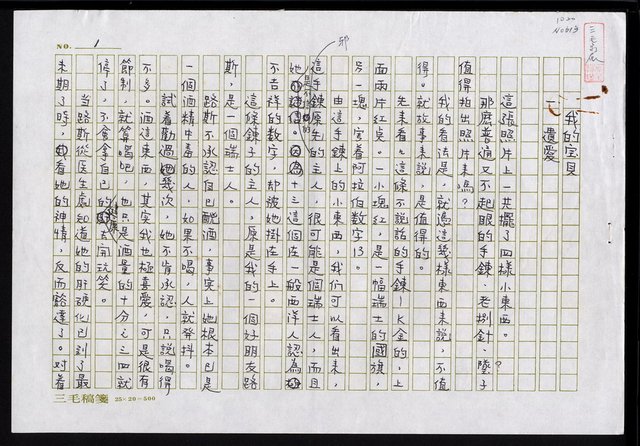 NO. 1
我的宝貝
遺愛
這張照片上一共擺了四樣小東西。
那麼普通又不起眼的手鍊、老別針、墜子，
值得拍出照片來嗎？
我的看法是，就憑這幾樣東西來說，不值
得。就故事來說，是值得的。
先來看看這條不說話的手鍊—K金的，上
面兩片紅塊。一小塊紅，是一幅瑞士的國旗，
另一塊，寫著阿拉伯數字13。
由這手鍊上的小東西，我們可以看出來，
這手鍊原先的主人，很可能是個瑞士人，而且
她是不信邪的。因為十三這個在一般西洋人認為
不吉祥的數字，却被她掛在手上。
這條鍊子的主人，原是我的一個好朋友路
斯，是一個瑞士人。
路斯不承認自己酗酒，事實上她根本已是
一個酒精中毒的人，如果不喝，人就發抖。
試著勸過她幾次，她不肯承認，只說喝得
不多。酒這東西，其實我也極喜愛，可是很有
節制，就算喝吧，也只是酒量的十分之三四就
停了，不會拿自己的健康去開玩笑。
當路斯從医生處知道她的肝硬化已到了最
末期了時，看她的神情，反而豁達了。对着
三毛稿箋 25×20=500